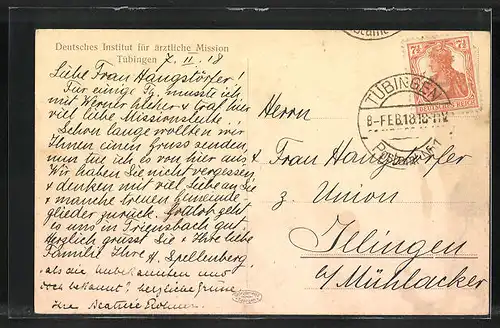 Deutsches Institut für ärztliche Mission
Tübingen 7. II. 18
Liebe Frau Hangstörfer!
Für einige Tg. musste ich
mit Werner hieher & traf hier
viel liebe Missionsleute!
Schon lange wollten wir
Ihnen einen Gruss senden,
nun tue ich es von hier aus &
Wir haben Sie nicht vergessen
& denken mit viel Liebe an Sie
& manche treuen Gemeinde-
glieder zurück. Gottlob geht
es uns in Triensbach gut.
Herzlich grüsst Sie & Ihre liebe
Familie Ihre A. Spellenberg.
als die unbekannten und
doch bekannt? herzliche Grüsse
Ihre Beatrice
TÜBINGEN
8-FEB.18
7½ 7½
DEUTSCHES REICH
Herrn
Frau Hangstörfer
z. Union
Illingen
O/ Mühlacker